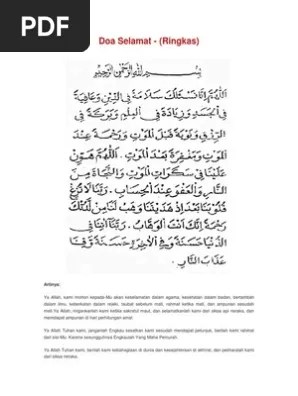 PDF
Doa Selamat - (Ringkas)
بِسْمِ اللهِ الرَّحْمٰنِ الرَّحِيْمِ
اَللّٰهُمَّ اِنَّا نَسْئَلُكَ سَلَامَةً فِى الدِّيْنِ وَعَافِيَةً
فِى الْجَسَدِ وَزِيَادَةً فِى الْعِلْمِ وَبَرَكَةً فِى
الرِّزْقِ وَتَوْبَةً قَبْلَ الْمَوْتِ وَرَحْمَةً عِنْدَ
الْمَوْتِ وَمَغْفِرَةً بَعْدَ الْمَوْتِ. اَللّٰهُمَّ هَوِّنْ
عَلَيْنَا فِى سَكَرَاتِ الْمَوْتِ وَالنَّجَاةَ مِنَ
النَّارِ وَالْعَفْوَ عِنْدَ الْحِسَابِ. رَبَّنَا لَا تُزِغْ
قُلُوْبَنَا بَعْدَ اِذْ هَدَيْتَنَا وَهَبْ لَنَا مِنْ لَّدُنْكَ
رَحْمَةً اِنَّكَ اَنْتَ الْوَهَّابُ. رَبَّنَا اٰتِنَا فِى
الدُّنْيَا حَسَنَةً وَفِى الْاٰخِرَةِ حَسَنَةً وَقِنَا
عَذَابَ النَّارِ
Artinya:
Ya Allah, kami mohon kepada-Mu akan keselamatan dalam agama, kesihatan dalam badan, bertambah
dalam ilmu, keberkatan dalam rezeki, taubat sebelum mati, rahmat ketika mati, dan ampunan sesudah
mati.Ya Allah, ringankanlah kami ketika sakratul maut, dan selamatkanlah kami dari siksa api neraka, dan
mendapat ampunan di hari perhitungan amal.
Ya Allah Tuhan kami, janganlah Engkau sesatkan kami sesudah mendapat petunjuk, berilah kami rahmat
dari sisi-Mu. Karena sesungguhnya Engkaulah Yang Maha Pemurah.
Ya Allah Tuhan kami, berilah kami kebahagiaan di dunia dan kesejahteraan di akhirat, dan peliharalah kami
dari siksa neraka.